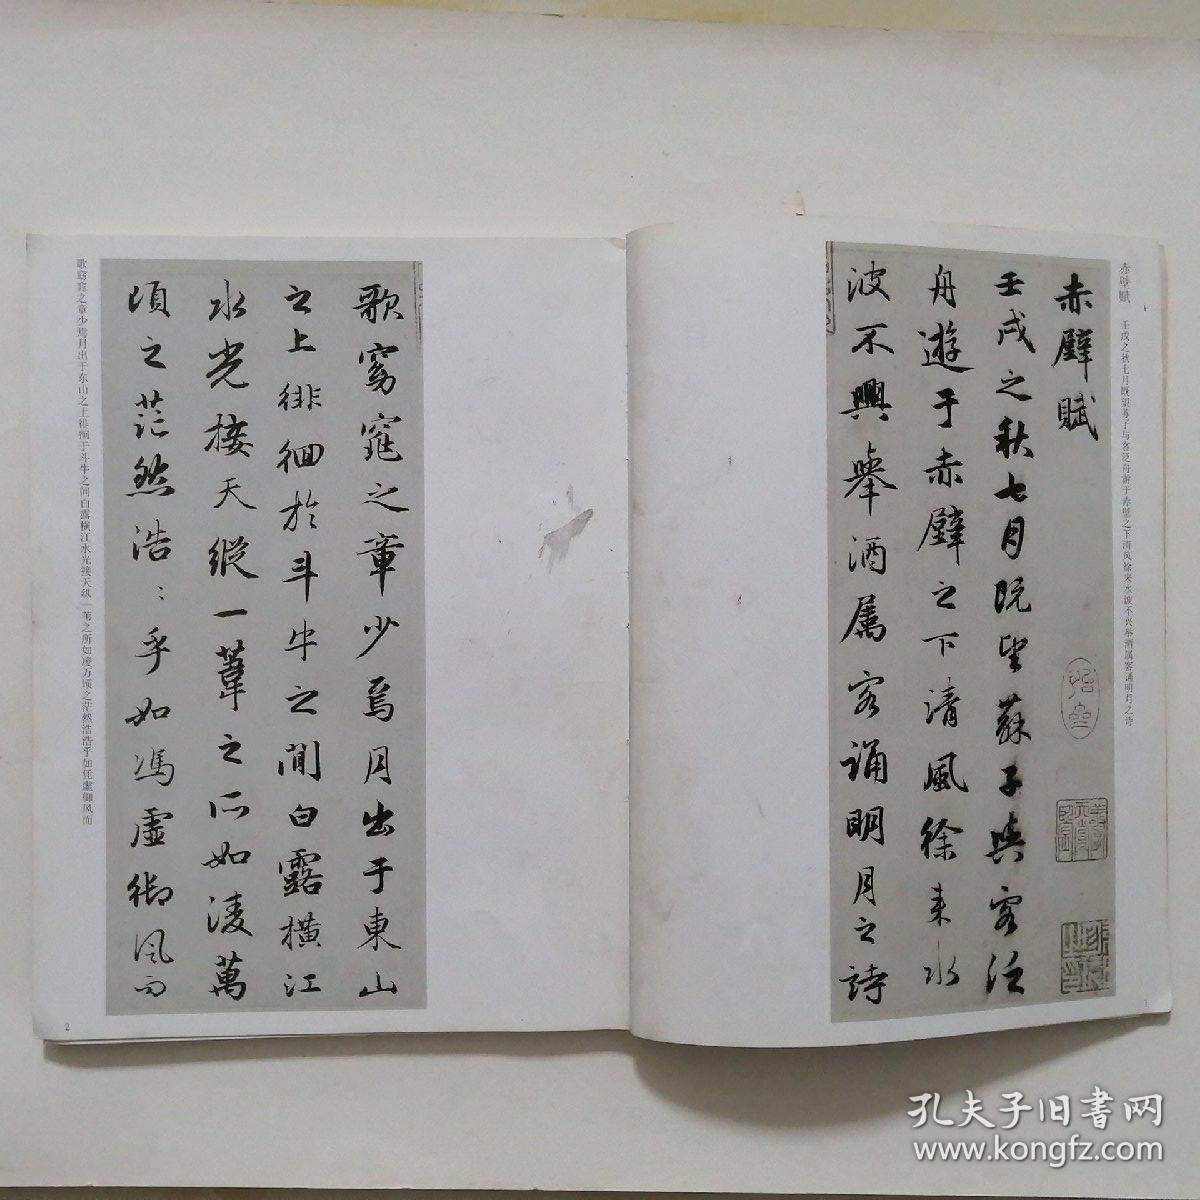 赤壁賦 壬戌之秋七月既望苏子与客泛舟游于赤壁之下清风徐来水波不兴举酒属客诵明月之诗
赤壁賦
壬戌之秋七月既望蘇子與客泛
舟遊于赤壁之下清風徐来水
波不興舉酒属客誦明月之詩
1
歌窈窕之章少焉月出于東山
之上徘徊於斗牛之間白露横江
水光接天縱一葦之所如凌萬
頃之茫然浩〻乎如馮虚御風而
歌窈窕之章少焉月出于东山之上徘徊于斗牛之间白露横江水光接天纵一苇之所如凌万顷之茫然浩浩乎如凭虚御风而
2
孔夫子旧书网
www.kongfz.com